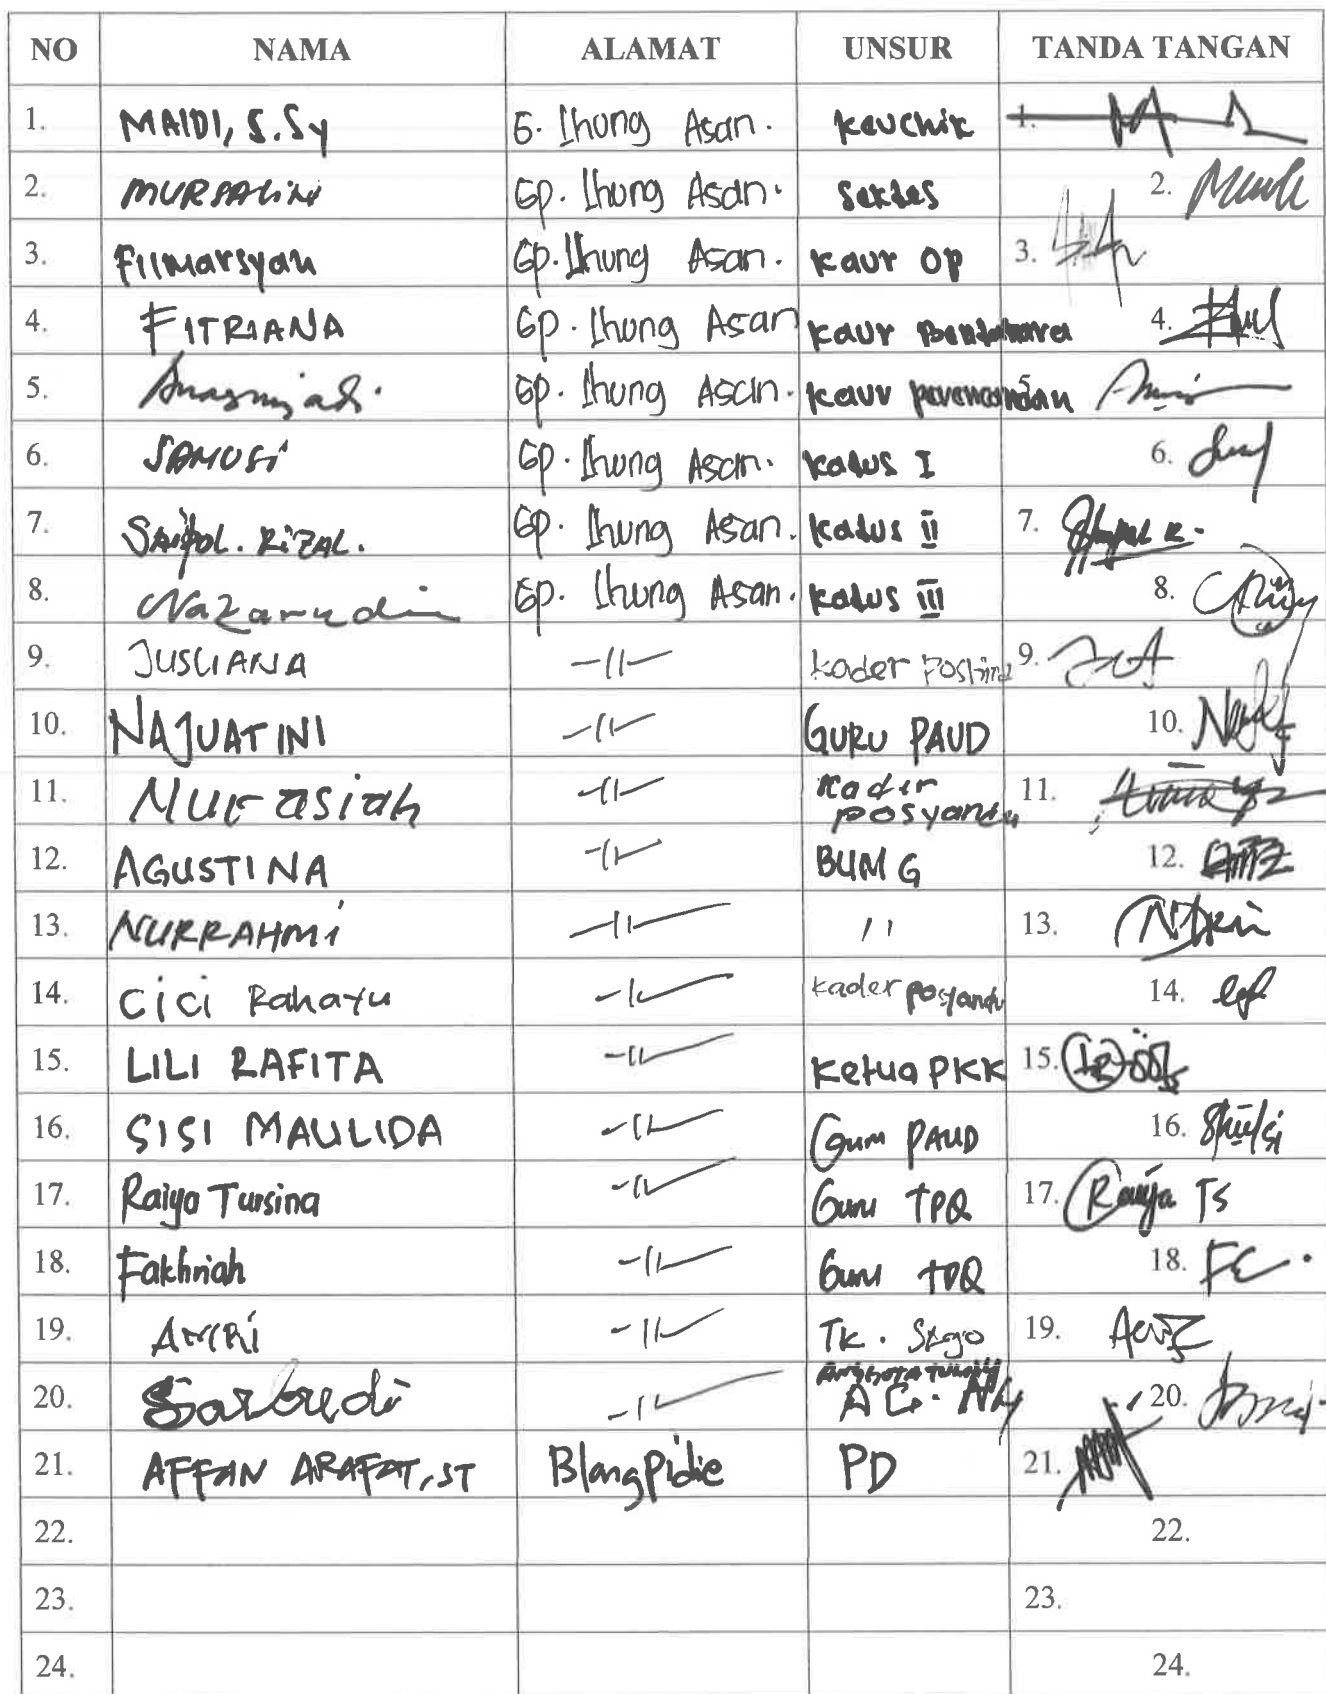 NO NAMA ALAMAT UNSUR TANDA TANGAN
1. MAIDI, S.Sy G. Lhung Asan. keuchik 1.
2. MURSALIN Gp. Lhung Asan. sekdes 2.
3. Filmarsyah Gp. Lhung Asan. kaur OP 3.
4. FITRIANA Gp. Lhung Asan kaur Bendahara 4.
5. Gp. Lhung Asan. kaur perencanaan 5.
6. SAMUSI Gp. Lhung Asan. kadus I 6.
7. SAIPOL. RIZAL. Gp. Lhung Asan. kadus II 7.
8. Nazarudin Gp. Lhung Asan. kadus III 8.
9. JUSLIANA -11- kader 9.
10. NAJUATINI -11- GURU PAUD 10.
11. Murasiah -11- kader posyandu 11.
12. AGUSTINA -11- BUMG 12.
13. NURRAHMI -11- 11 13.
14. Cici Rahayu -11- kader posyandu 14.
15. LILI RAFITA -11- Ketua PKK 15.
16. SISI MAULIDA -11- Guru PAUD 16.
17. Raiya Tursina -11- Guru TPQ 17. Raiya TS
18. Fakhriah -11- Guru TPQ 18.
19. AMRI -11- TK. 19.
20. Sarbudi -11- 20.
21. AFFAN ARAFAT, ST Blangpidie PD 21.
22. 22.
23. 23.
24. 24.